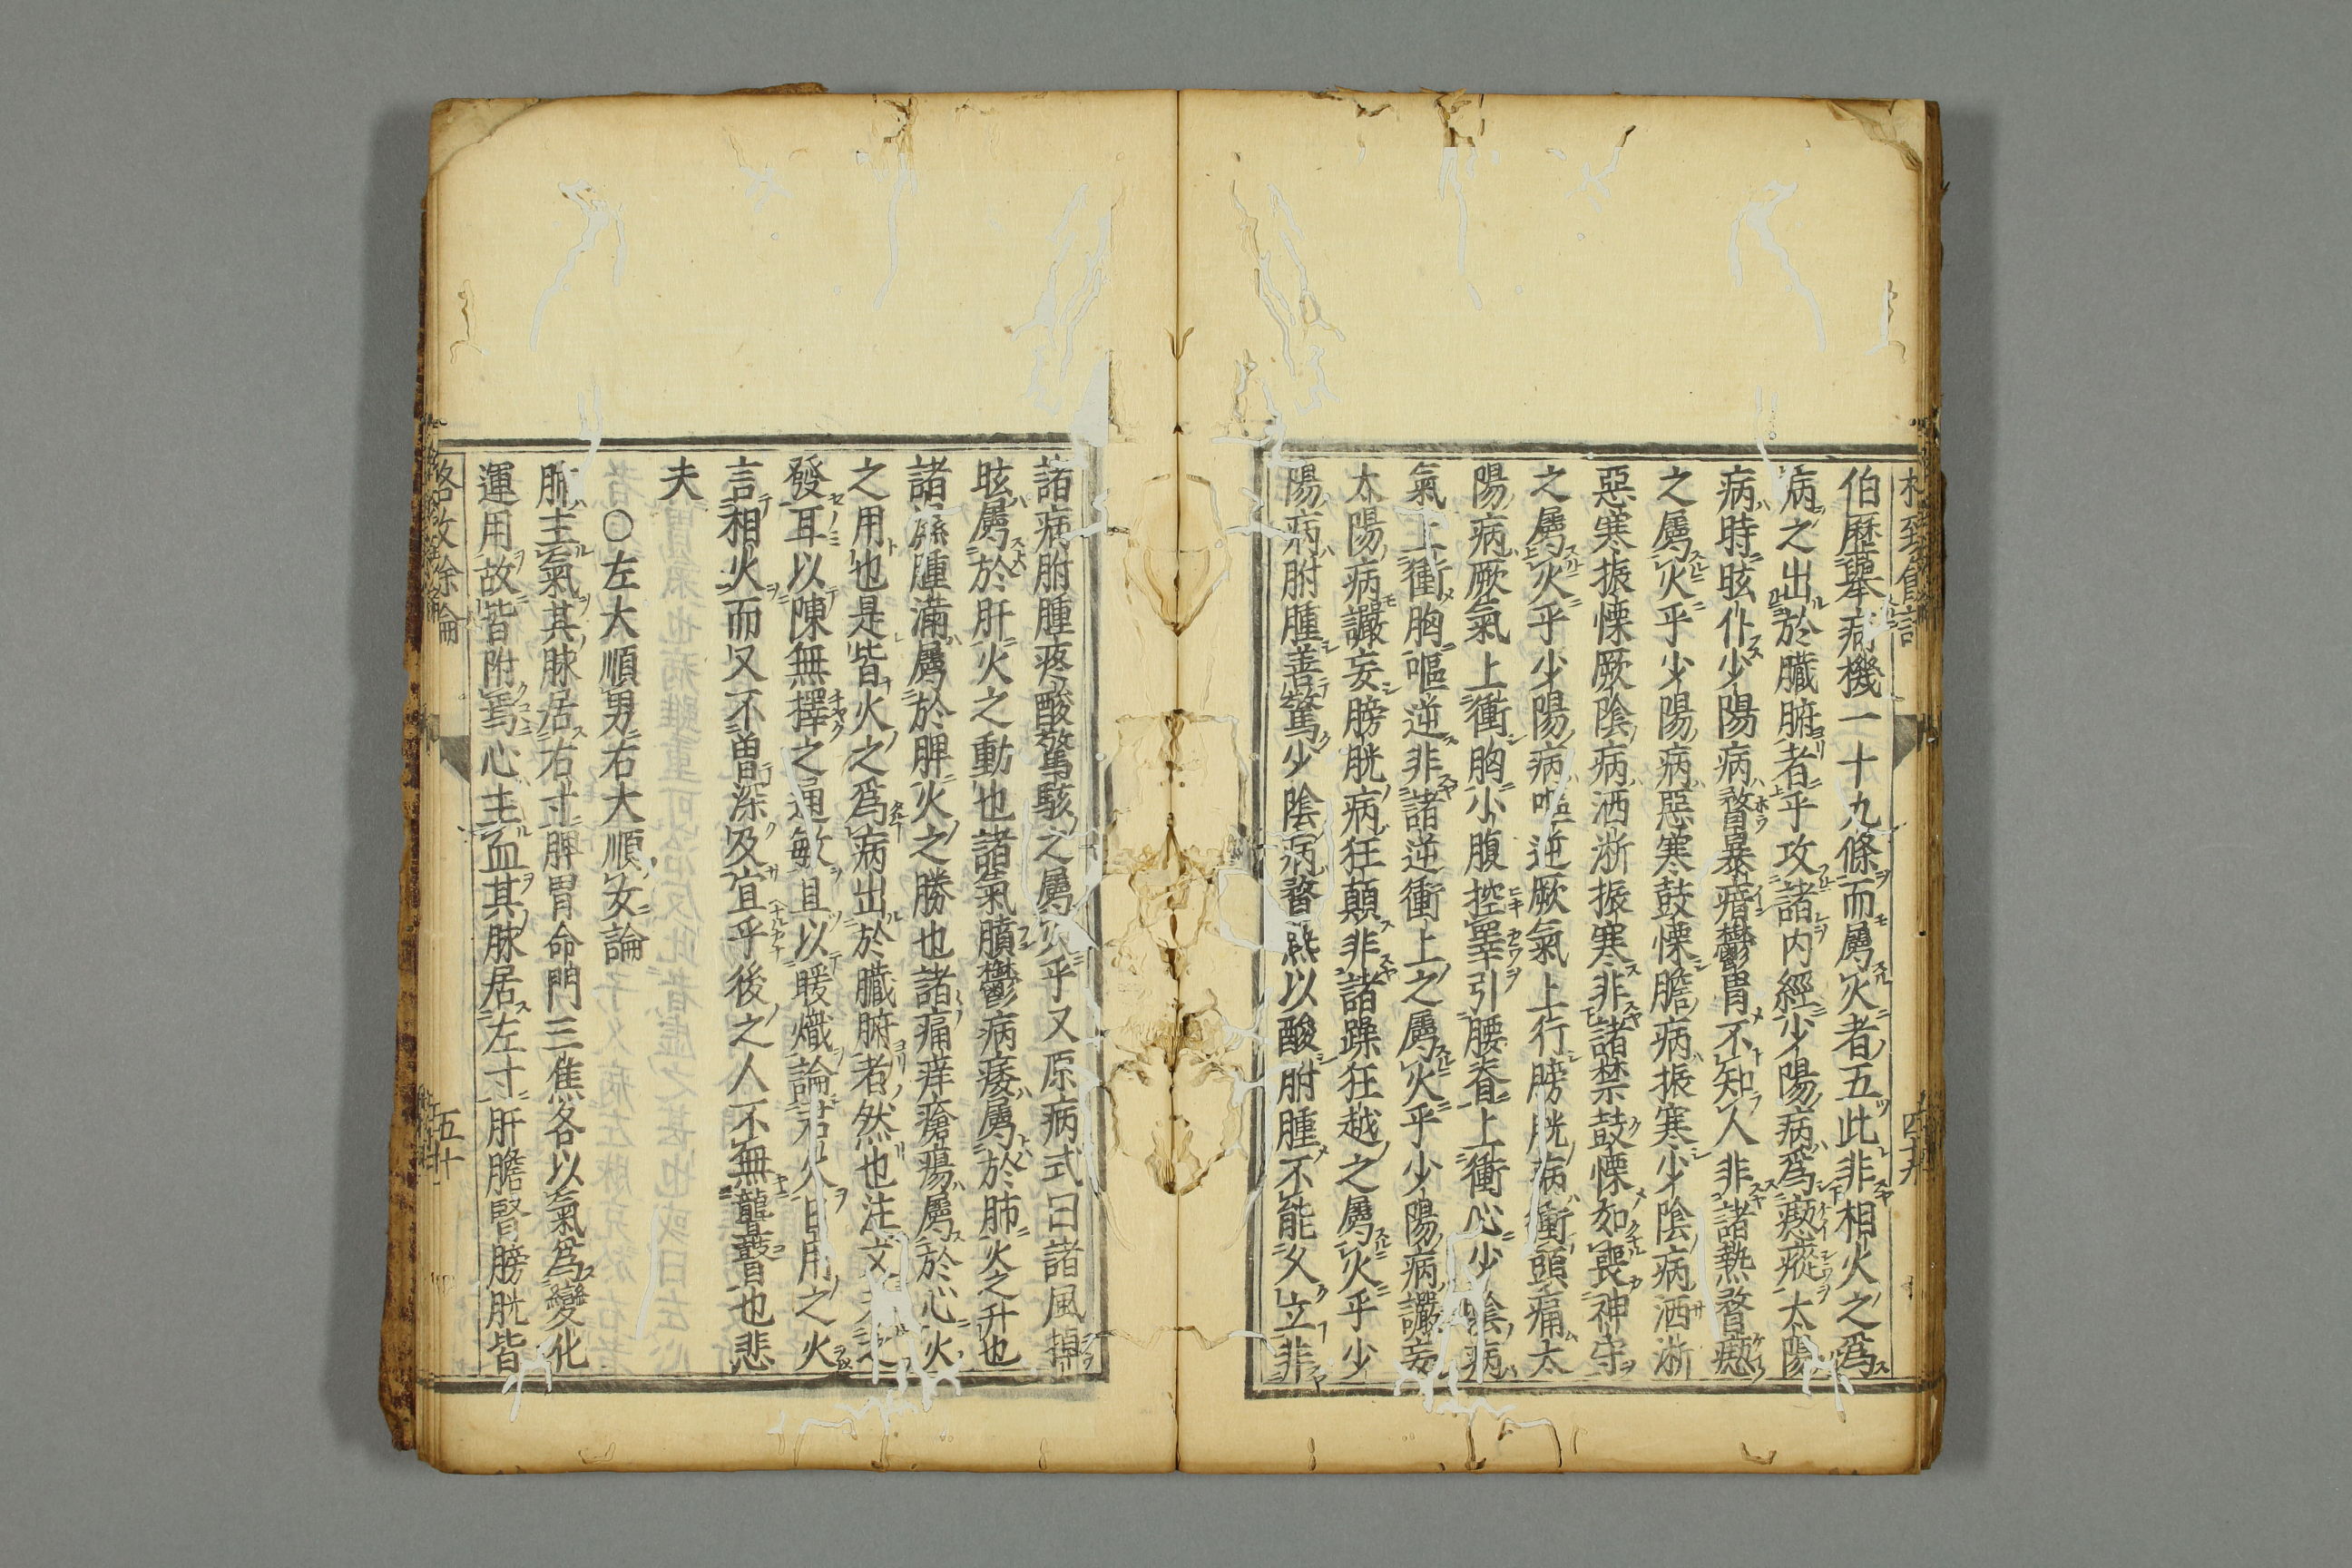 伯歷舉病機一十九條而屬火者五此非相火之爲
病之出於臟腑者乎攻諸内經少陽病爲瘛瘲太陽
病時眩仆少陽病瞀暴瘖鬱冒不知人非諸熱瞀瘛
之屬火乎少陽病惡寒鼓慄膽病振寒少陰病洒淅
惡寒振慄厥陰病洒淅振寒非諸禁鼓慄如喪神守
之屬火乎少陽病嘔逆厥氣上行膀胱病衝頭痛太
陽病厥氣上衝胸小腹控睪引腰脊上衝心少陰病
氣上衝胸嘔逆非諸逆衝上之屬火乎少陽病讝妄
太陽病讝妄膀胱病狂顛非諸躁狂越之屬火乎少
陽病胕腫善驚少陰病瞀熱以酸胕腫不能久立非
諸病胕腫疼酸驚駭之屬火乎又原病式曰諸風掉
眩屬於肝火之動也諸氣膹鬱病痿屬於肺火之升也
諸濕腫滿屬於脾火之勝也諸痛痒瘡瘍屬於心火
之用也是皆火之爲病出於臟腑者然也注文未之
發耳以陳無擇之通敏且以暖熾論君火日用之火
言相火而又不曽深及宜乎後之人不無聾瞽也悲
夫
〇左大順男右大順女論
肺主氣其脉居右寸脾胃命門三焦各以氣爲變化
運用故皆附焉心主血其脉居左寸肝膽腎膀胱皆
格致餘論
五十